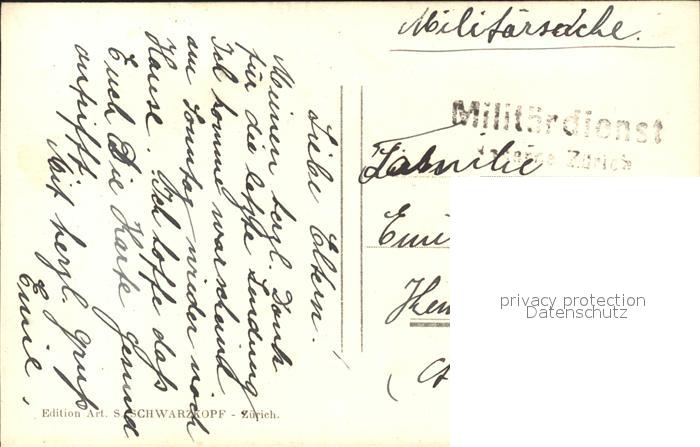 Militärsache.
Militärdienst
Kaserne Zürich
Familie
Emi
Hem
Liebe Eltern.
Meinen herzl. Dank
für die letzte Sendung
Ich komme warscheind
am Sonntag wieder noch
Hause. Ich hoffe daß
Euch Die Karte gesund
antrifft.
Mit herzl. Gruß
Emil.
privacy protection
Datenschutz
Edition Art. S. SCHWARZKOPF - Zürich.